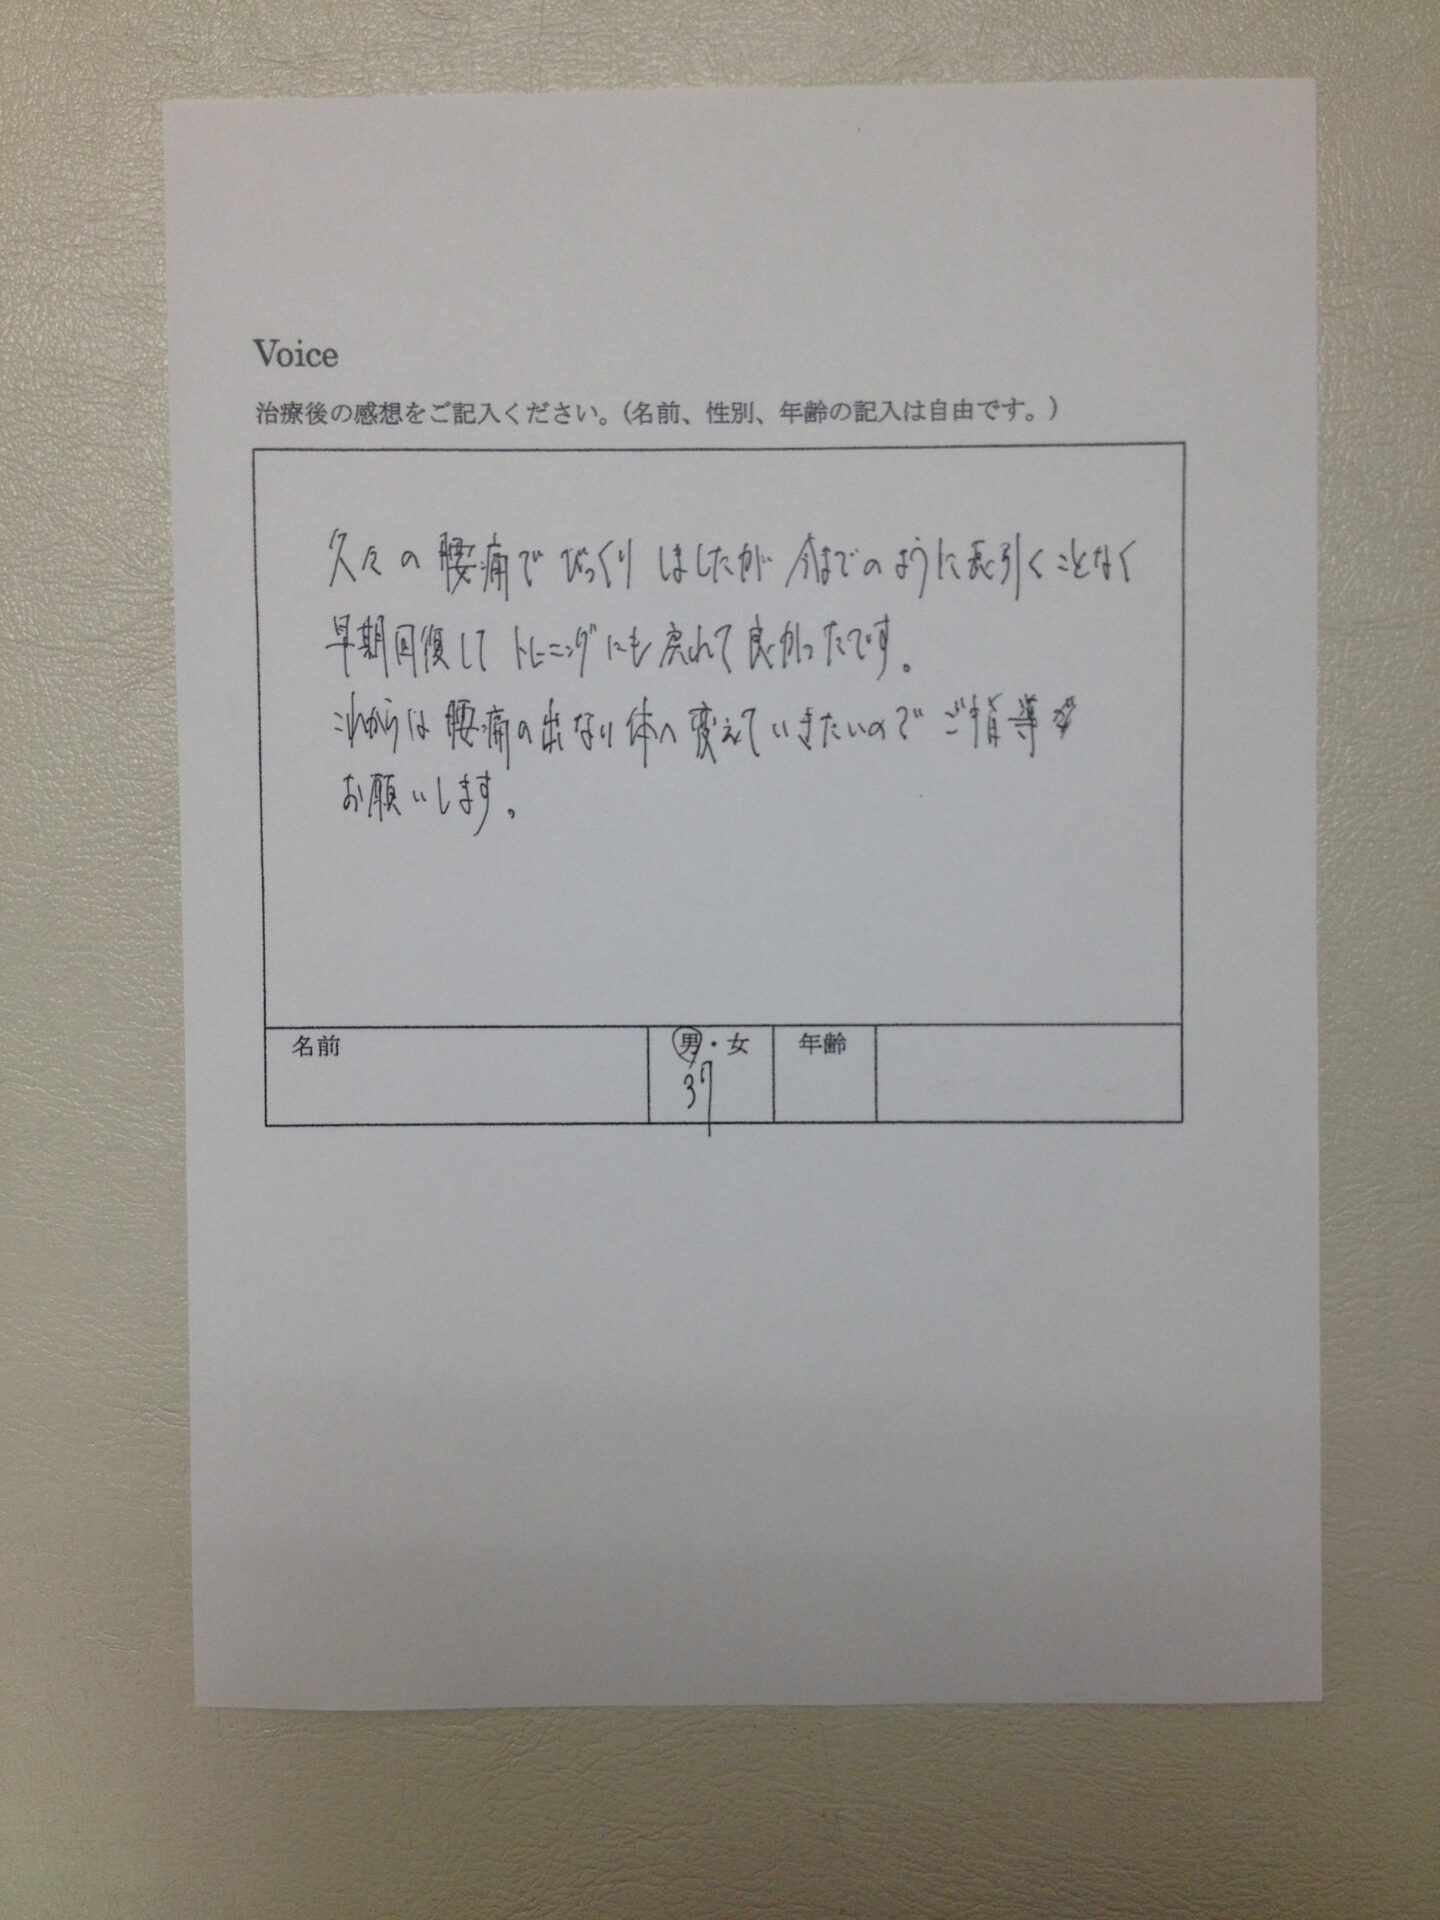 Voice
治療後の感想をご記入ください。(名前、性別、年齢の記入は自由です。)
久々の腰痛でびっくりしましたが今までのように長引くことなく
早期回復してトレーニングにも戻れて良かったです。
これからは腰痛の出ない体へ変えていきたいのでご指導
お願いします。
名前 男・女 年齢
37